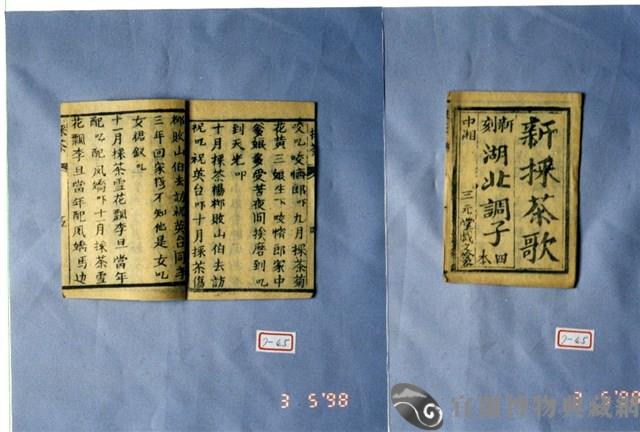 咬吃咬臍郎吓九月採茶菊
花黃三娘生下咬臍郎家中
爹娘多受苦夜間挨磨到吃
到天光吓
十月採茶楊柳敗山伯去訪
祝吃祝英台吓十月採茶
柳敗山伯去訪祝英台同
三年回家不知他是女吃
女裙釵吃
十一月採茶雪花飄李旦當年
配吃配鳳嬌吓十一月採茶雪
花飄李旦當年配鳳嬌馬边
採茶
7-65
3 5'98
新採茶歌
新刻湖北調子四本
中湘 三元堂
7-65
3 5'98
宜蘭博物典藏網